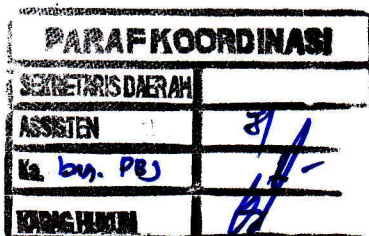 PARAF KOORDINASI
SEKRETARIS DAERAH
ASSISTEN
Ka. bag. PBJ
KABAG HUKUM